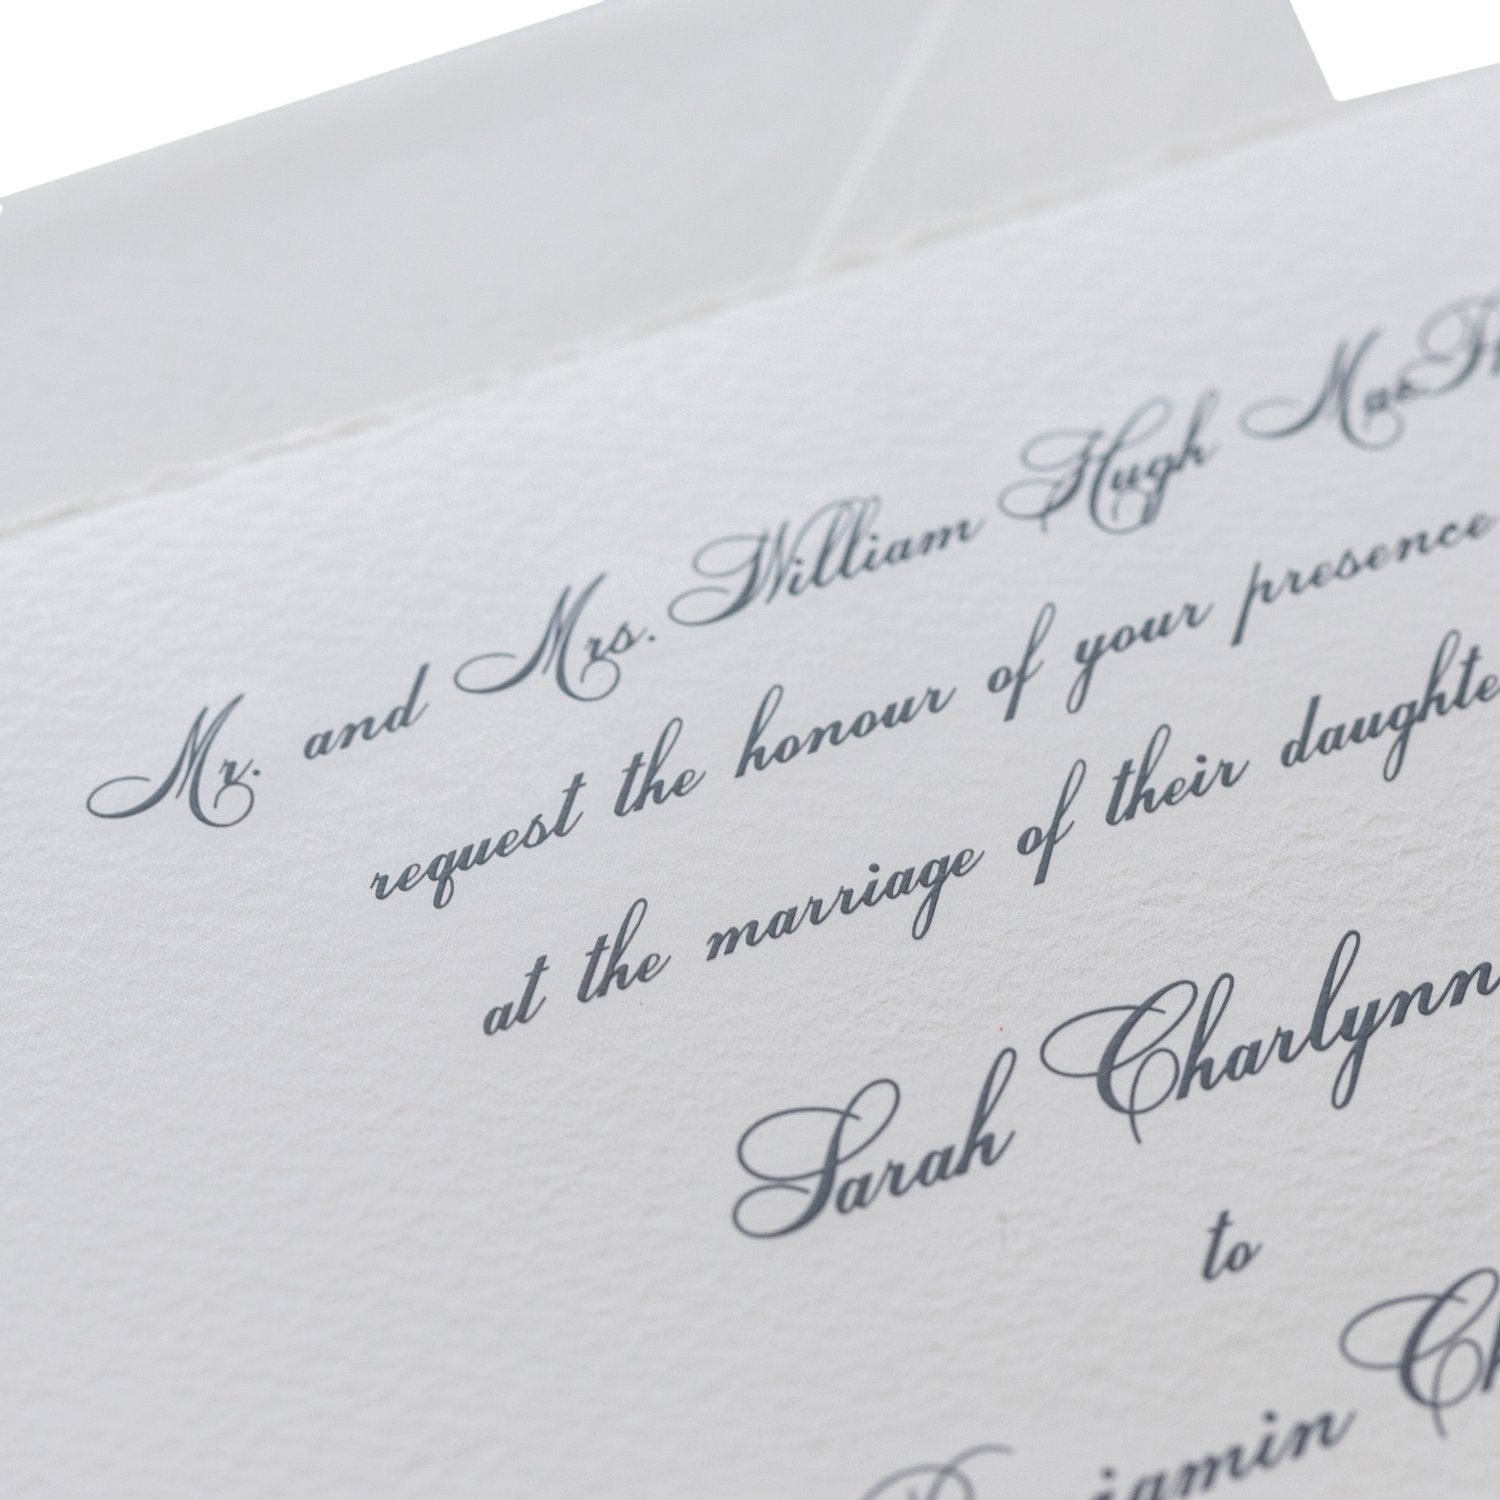 Mr. and Mrs. William Hugh
request the honour of your presence
at the marriage of their
Sarah Charlynn
to